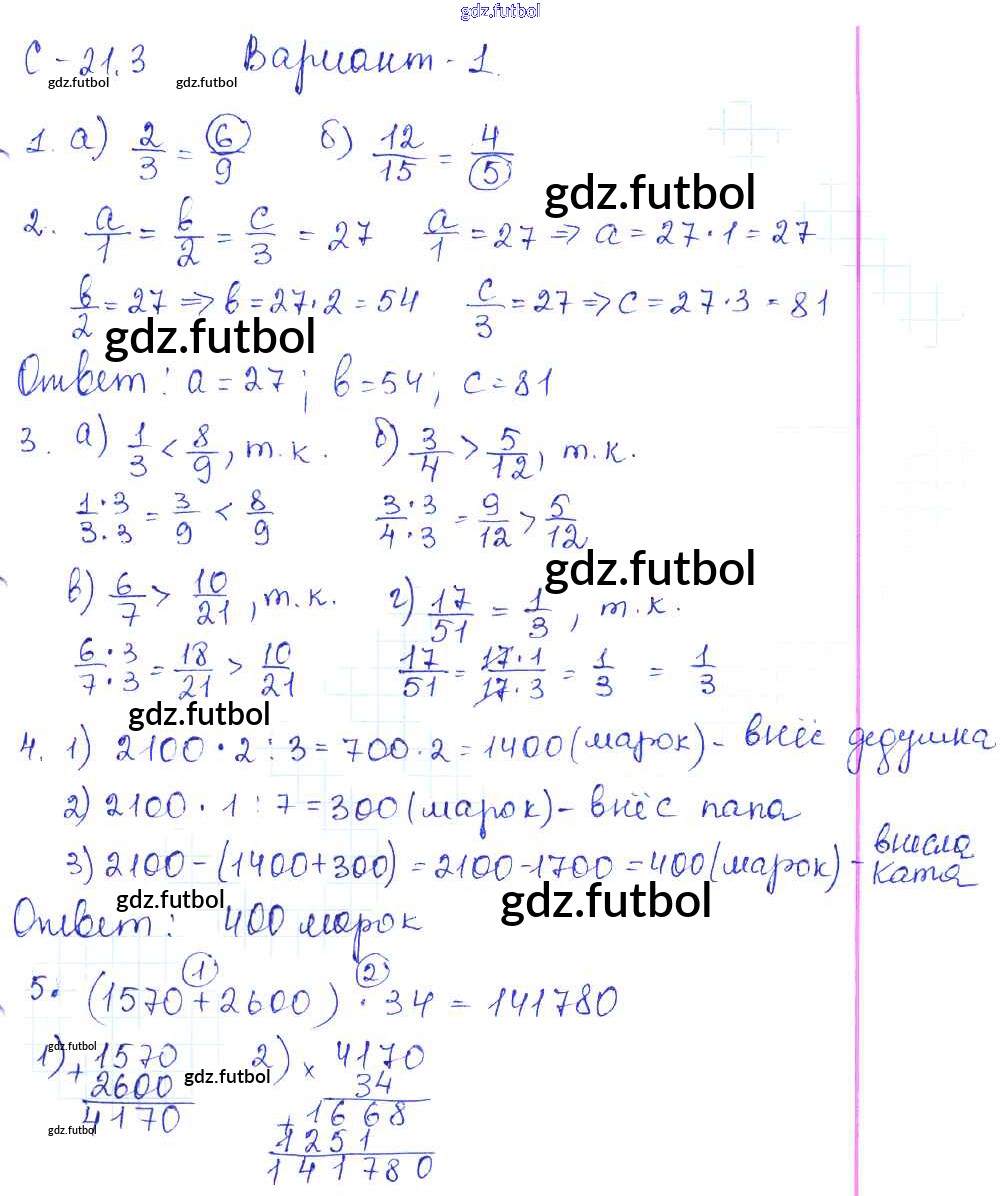 gdz.futbol
С-21.3 Вариант-1.
gdz.futbol gdz.futbol
1. а) 2/3 = 6/9 б) 12/15 = 4/5
gdz.futbol
2. a/1 = b/2 = c/3 = 27 a/1 = 27 => a = 27·1 = 27
b/2 = 27 => b = 27·2 = 54 c/3 = 27 => c = 27·3 = 81
gdz.futbol
Ответ: a = 27; b = 54; c = 81
3. а) 1/3 < 8/9, т.к. б) 3/4 > 5/12, т.к.
1·3/3·3 = 3/9 < 8/9 3·3/4·3 = 9/12 > 5/12
gdz.futbol
в) 6/7 > 10/21, т.к. г) 17/51 = 1/3, т.к.
6·3/7·3 = 18/21 > 10/21 17/51 = 17·1/17·3 = 1/3 = 1/3
gdz.futbol
4. 1) 2100·2:3 = 700·2 = 1400 (марок) - внёс дедушка
2) 2100·1:7 = 300 (марок) - внёс папа
3) 2100-(1400+300) = 2100-1700 = 400 (марок) - внесла Катя
gdz.futbol gdz.futbol
Ответ: 400 марок
1 2
5. (1570+2600)·34 = 141780
gdz.futbol
1) + 1570 2) × 4170
2600 34
gdz.futbol
4170 + 1668
gdz.futbol
1251
141780